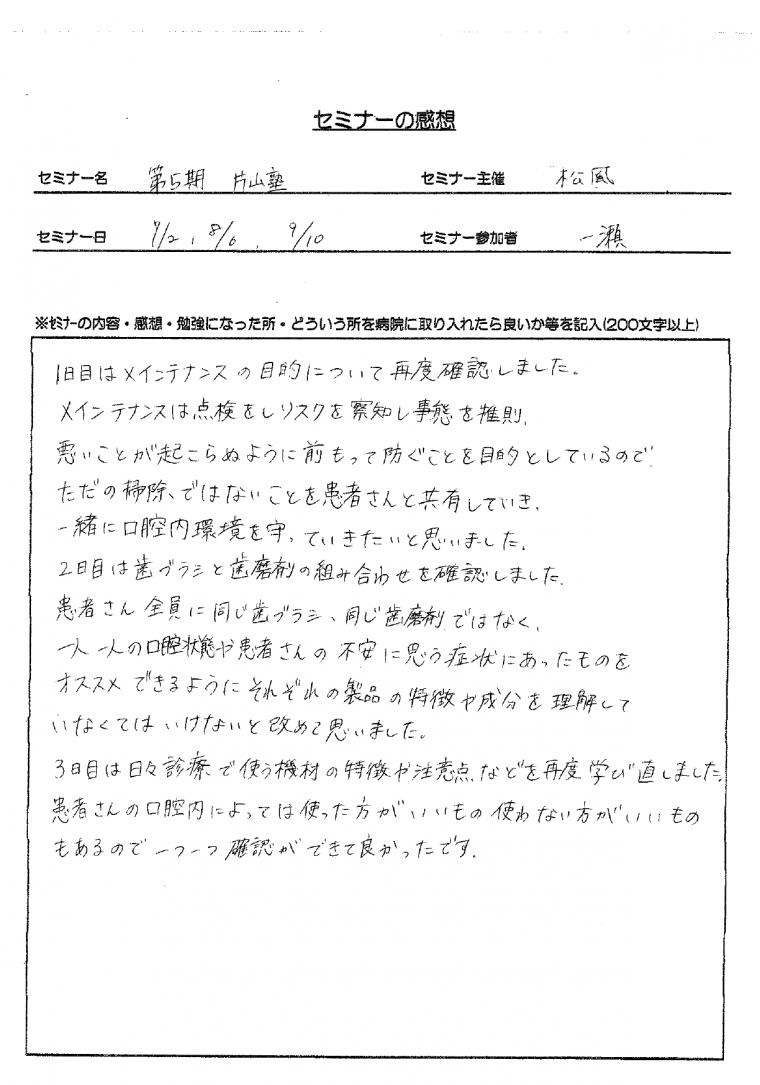 セミナーの感想
セミナー名 第5期 片山塾 セミナー主催 松風
セミナー日 7/2, 8/6, 9/10 セミナー参加者 一瀬
※セミナーの内容・感想・勉強になった所・どういう所を病院に取り入れたら良いか等を記入(200文字以上)
1日目はメインテナンスの目的について再度確認しました。
メインテナンスは点検をしリスクを察知し事態を推則、
悪いことが起こらぬように前もって防ぐことを目的としているので、
ただの掃除、ではないことを患者さんと共有していき、
一緒に口腔内環境を守っていきたいと思いました。
2日目は歯ブラシと歯磨剤の組み合わせを確認しました。
患者さん全員に同じ歯ブラシ、同じ歯磨剤ではなく、
一人一人の口腔状態や患者さんの不安に思う症状にあったものを
オススメできるようにそれぞれの製品の特徴や成分を理解して
いなくてはいけないと改めて思いました。
3日目は日々診療で使う機材の特徴や注意点などを再度学び直しました。
患者さんの口腔内によっては使った方がいいもの使わない方がいいもの
もあるので一つ一つ確認ができて良かったです。